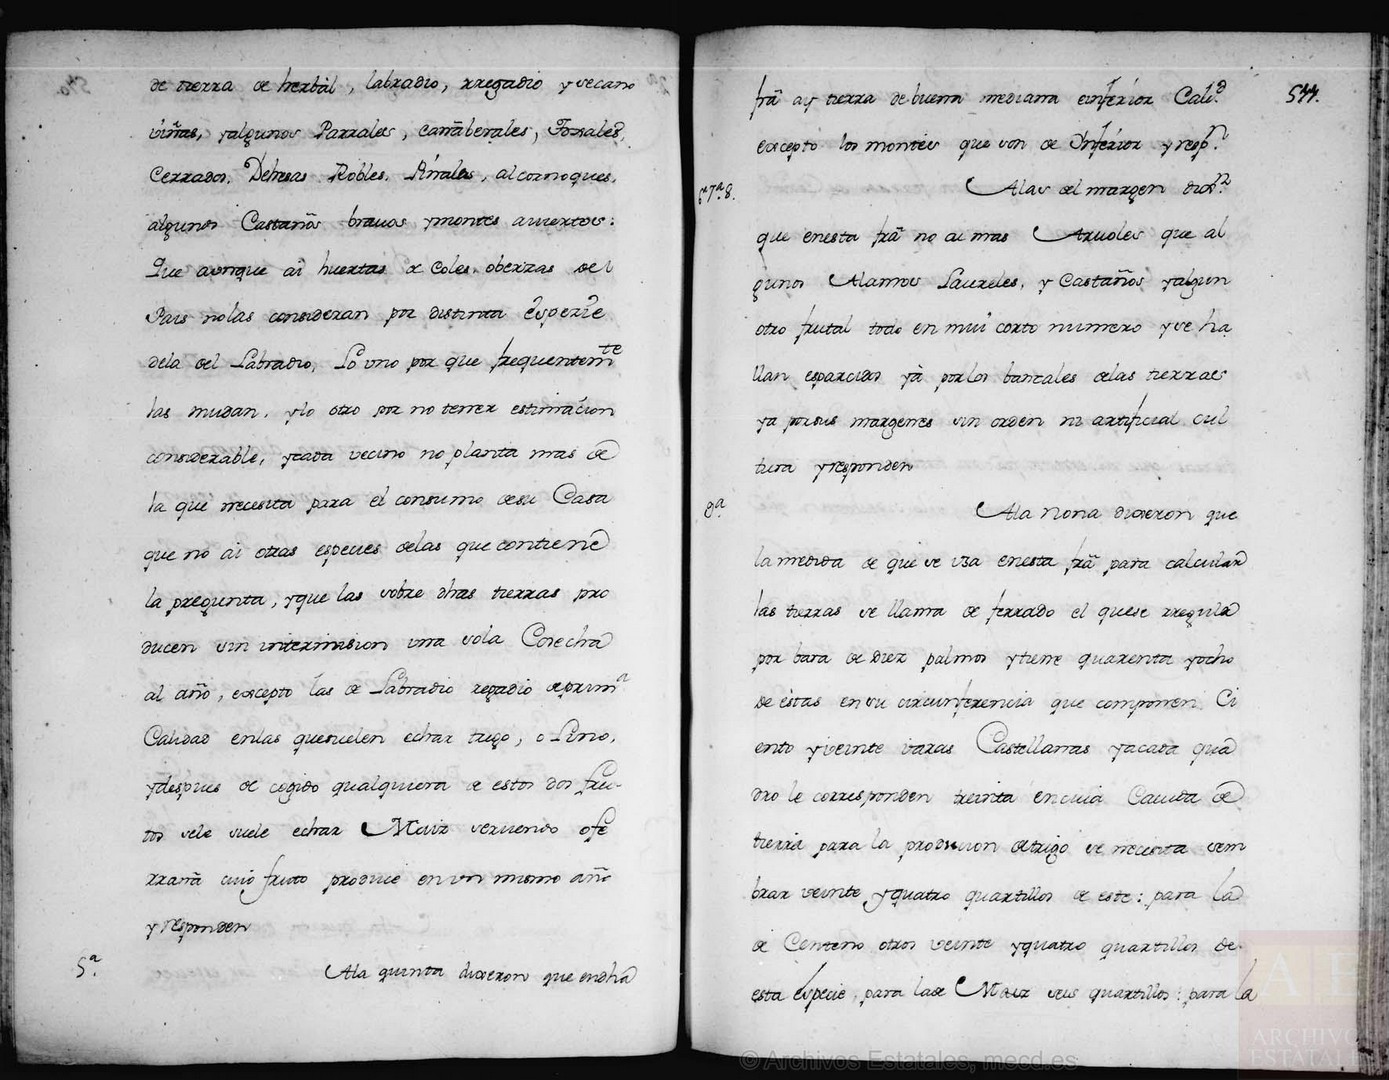 de tierra de herbal, labradio, rregadio y vecano
viñas, yalgunos Parrales, cañaberales, Toxales,
Cerrados, Dehesas Robles, Pinales, alcornoques,
algunos Castaños brauos ymontes auiertos:
Que aunque ai huertas de Coles, oberzas del
Pais nolas consideran por distinta Especie
dela del Labradio, Lo uno por que frequentemte
las mudan, ylo otro por no tener estimacion
considerable, ycada vecino no planta mas de
la que necesita para el consumo desu Casa
que no ai otras especies delas que contiene
la pregunta, yque las sobre dhas tierras pro
ducen sin intermision una sola Cosecha
al año, excepto las de Labradio regadio deprima
Calidad enlas quesuelen echar trigo, o Lino,
ydespues de cogido qualquiera de estos dos fru-
tos sele suele echar Maiz seruendo ofe
rraña cuio fruto produce en un mismo año
y responden
5a. Ala quinta dixeron que endha
544.
fra ay tierra debuena mediana einferior Calid
excepto los montes que son de Inferior yrespn
6a 7a 8. Alas del margen dixn
que enesta fra no ai mas Aruoles que al
gunos Alamos Laureles, y Castaños yalgun
otro frutal todo en mui corto numero yse ha
llan esparcidos ya porlos bancales delas tierras
ya porsus margenes sin orden ni artificial cul
tura yresponden
9a. Ala nona dixeron que
la medida de que se usa enesta fra para calcular
las tierras se llama de ferrado el quese rregula
por bara de diez palmos ytiene quarenta yocho
de éstas ensu circunferencia que componen Ci
ento yveinte varas Castellanas yacada qua
dro le corresponden treinta encuia Cauida de
tierra para la producion detrigo se necesita sem
brar veinte yquatro quartillos de este: para la
de Centeno otros veinte yquatro quartillos de
esta especie, para lade Maiz seis quartillos: para la
© Archivos Estatales, mecd.es
AE
ARCHIVOS
ESTATALES